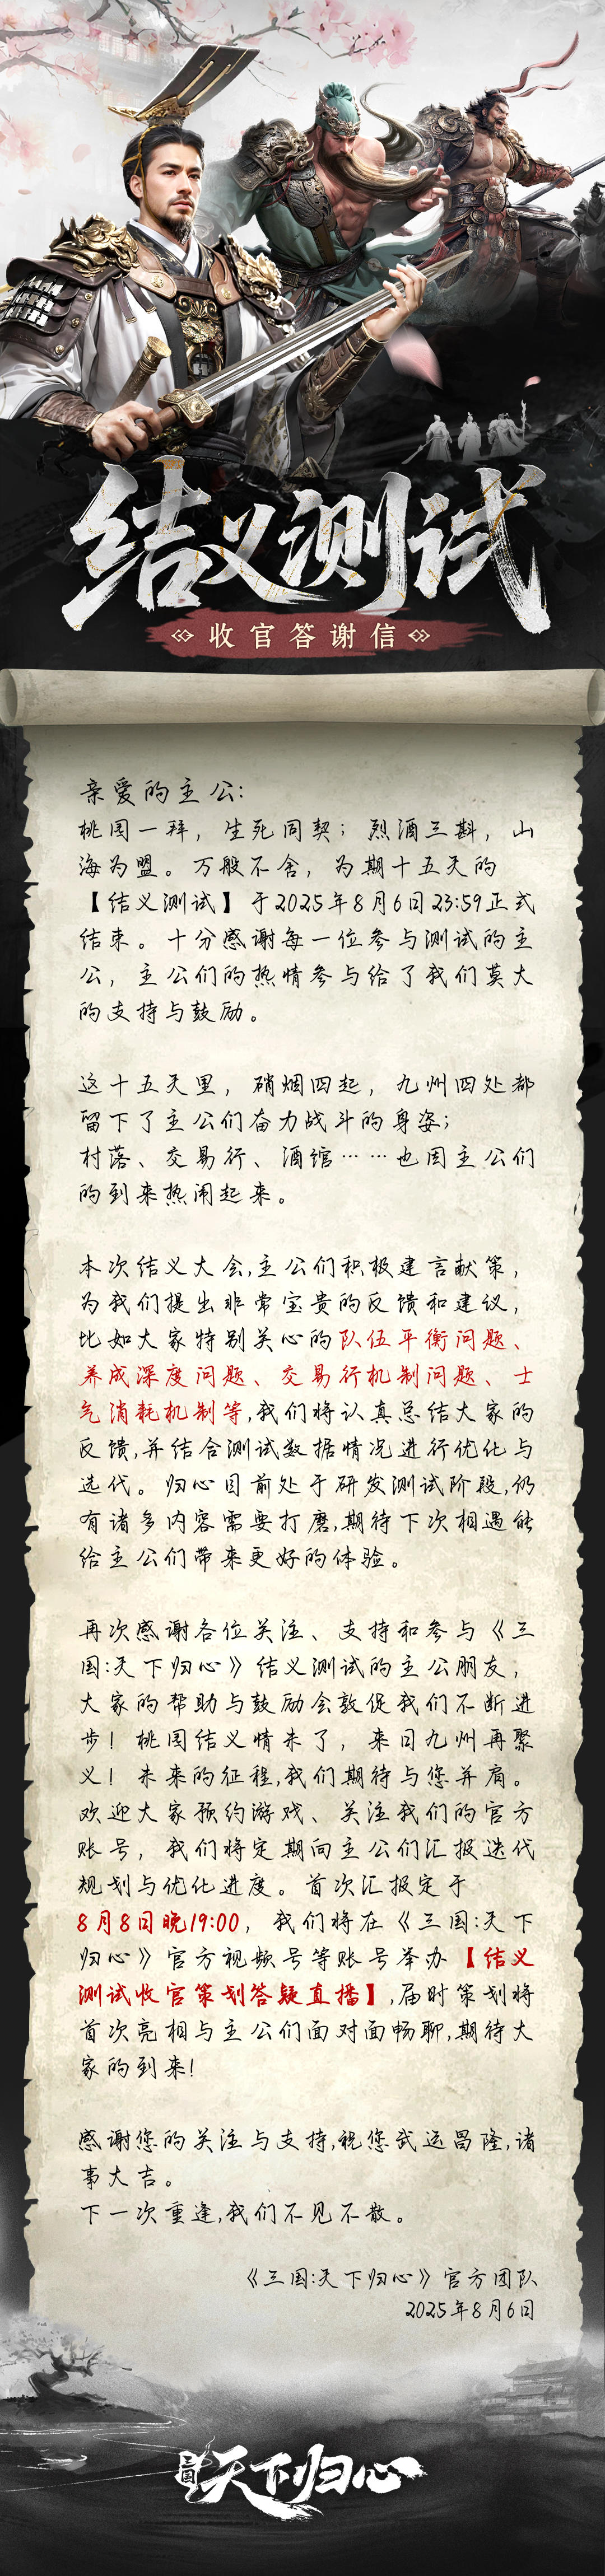 结义测试
收官答谢信
亲爱的主公:
桃园一拜，生死同契；烈酒三斟，山
海为盟。万般不舍，为期十五天的
【结义测试】于2025年8月6日23:59正式
结束。十分感谢每一位参与测试的主
公，主公们的热情参与给了我们莫大
的支持与鼓励。
这十五天里，硝烟四起，九州四处都
留下了主公们奋力战斗的身姿；
村落、交易行、酒馆……也因主公们
的到来热闹起来。
本次结义大会,主公们积极建言献策，
为我们提出非常宝贵的反馈和建议，
比如大家特别关心的队伍平衡问题、
养成深度问题、交易行机制问题、士
气消耗机制等,我们将认真总结大家的
反馈,并结合测试数据情况进行优化与
迭代。归心目前处于研发测试阶段,仍
有诸多内容需要打磨,期待下次相遇能
给主公们带来更好的体验。
再次感谢各位关注、支持和参与《三
国:天下归心》结义测试的主公朋友，
大家的帮助与鼓励会敦促我们不断进
步！桃园结义情未了，来日九州再聚
义！未来的征程,我们期待与您并肩。
欢迎大家预约游戏、关注我们的官方
账号，我们将定期向主公们汇报迭代
规划与优化进度。首次汇报定于
8月8日晚19:00，我们将在《三国:天下
归心》官方视频号等账号举办【结义
测试收官策划答疑直播】,届时策划将
首次亮相与主公们面对面畅聊,期待大
家的到来!
感谢您的关注与支持,祝您武运昌隆,诸
事大吉。
下一次重逢,我们不见不散。
《三国:天下归心》官方团队
2025年8月6日
三国 天下归心